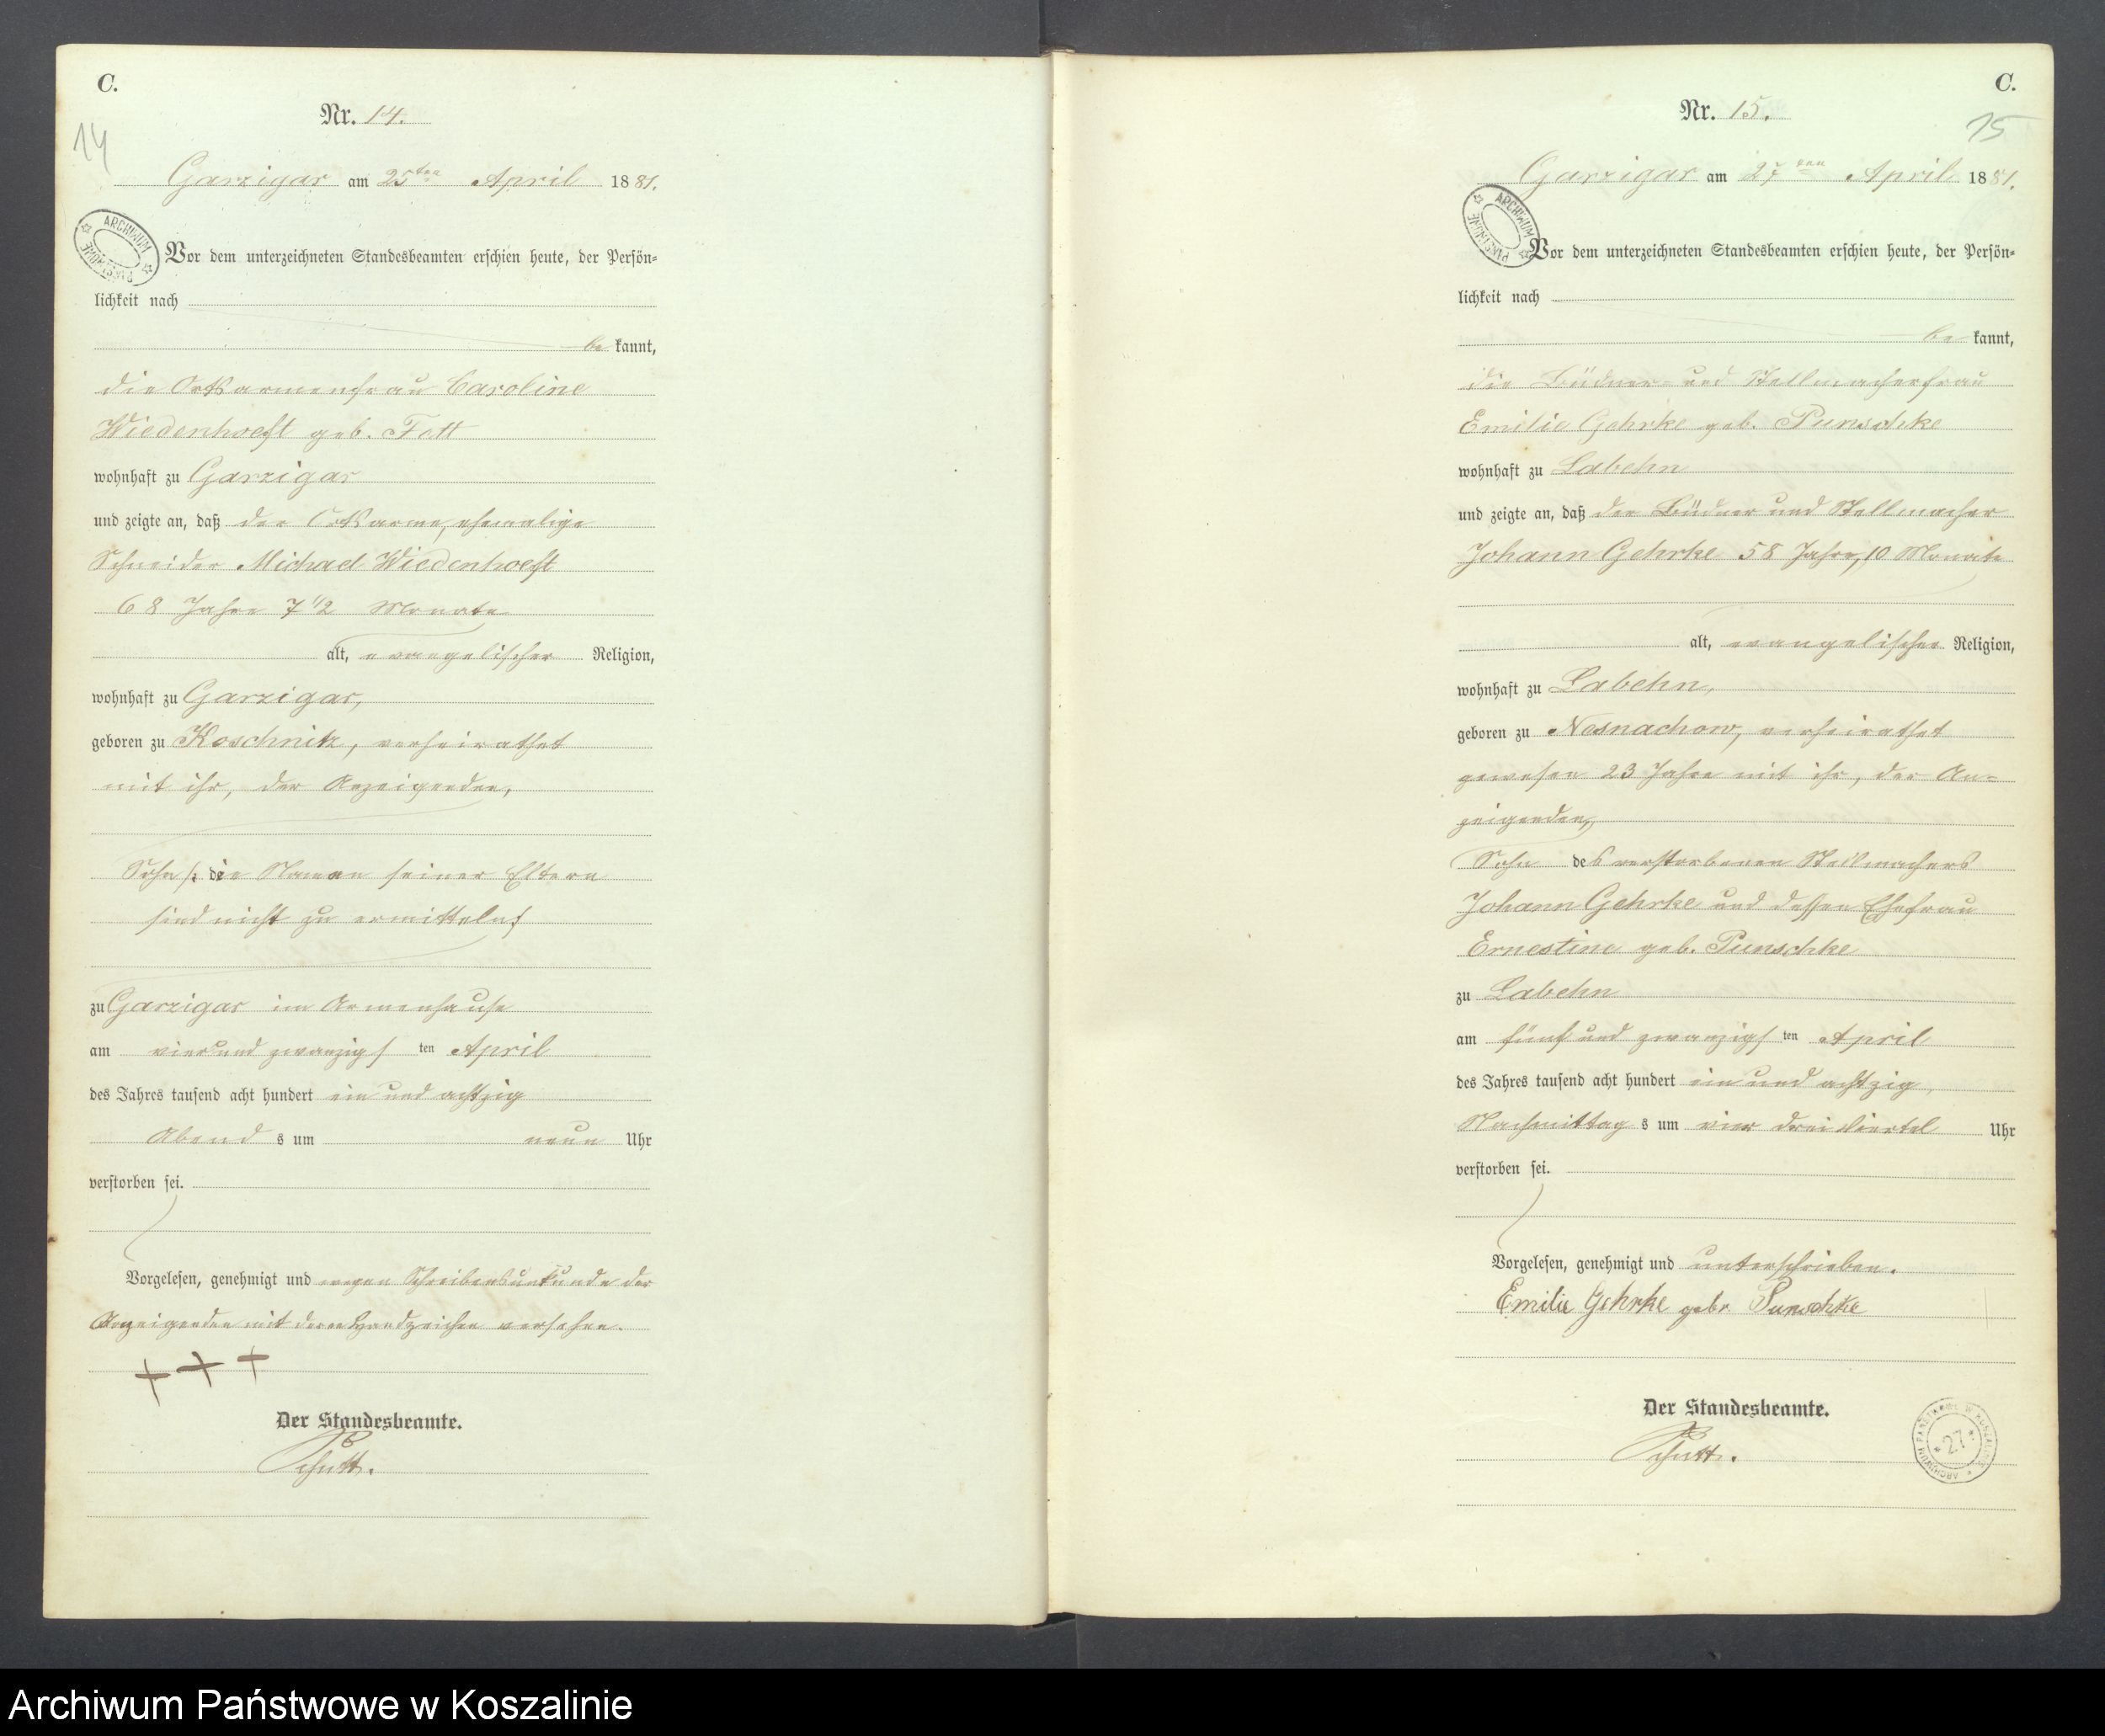 C.
Nr. 14.
14
Garzigar am 25ten April 1881.
ARCHIWUM PAŃSTWOWE
Vor dem unterzeichneten Standesbeamten erschien heute, der Persön-
lichkeit nach
be kannt,
die Ortsarmenfrau Caroline
Wiedenhoeft geb. Fett
wohnhaft zu Garzigar
und zeigte an, daß der Ortsarme, ehemalige
Schneider Michael Wiedenhoeft
68 Jahre 7 1/2 Monate
alt, evangelischer Religion,
wohnhaft zu Garzigar,
geboren zu Koschnitz, verheirathet
mit ihr, der Anzeigenden,
Sohn /: die Namen seiner Eltern
sind nicht zu ermitteln :/
zu Garzigar im Armenhause
am vier und zwanzigs ten April
des Jahres tausend acht hundert ein und achtzig
Abend s um neun Uhr
verstorben sei.
Vorgelesen, genehmigt und wegen Schreibensunkunde der
Anzeigenden mit deren Handzeichen versehen.
+ + +
Der Standesbeamte.
Schütt.
C.
Nr. 15.
15
Garzigar am 27ten April 1881.
ARCHIWUM PAŃSTWOWE
Vor dem unterzeichneten Standesbeamten erschien heute, der Persön-
lichkeit nach
be kannt,
die Büdner- und Stellmacherfrau
Emilie Gehrke geb. Punschke
wohnhaft zu Labehn
und zeigte an, daß der Büdner und Stellmacher
Johann Gehrke 58 Jahre, 10 Monate
alt, evangelischer Religion,
wohnhaft zu Labehn,
geboren zu Nesnachow, verheirathet
gewesen 23 Jahre mit ihr, der An-
zeigenden,
Sohn des verstorbenen Stellmachers
Johann Gehrke und dessen Ehefrau
Ernestine geb. Punschke
zu Labehn
am fünf und zwanzigs ten April
des Jahres tausend acht hundert ein und achtzig,
Nachmittag s um vier dreiviertel Uhr
verstorben sei.
Vorgelesen, genehmigt und unterschrieben.
Emilie Gehrke gebr. Punschke
Der Standesbeamte.
Schütt.
ARCHIWUM PAŃSTWOWE W KOSZALINIE
* 27 *
Archiwum Państwowe w Koszalinie